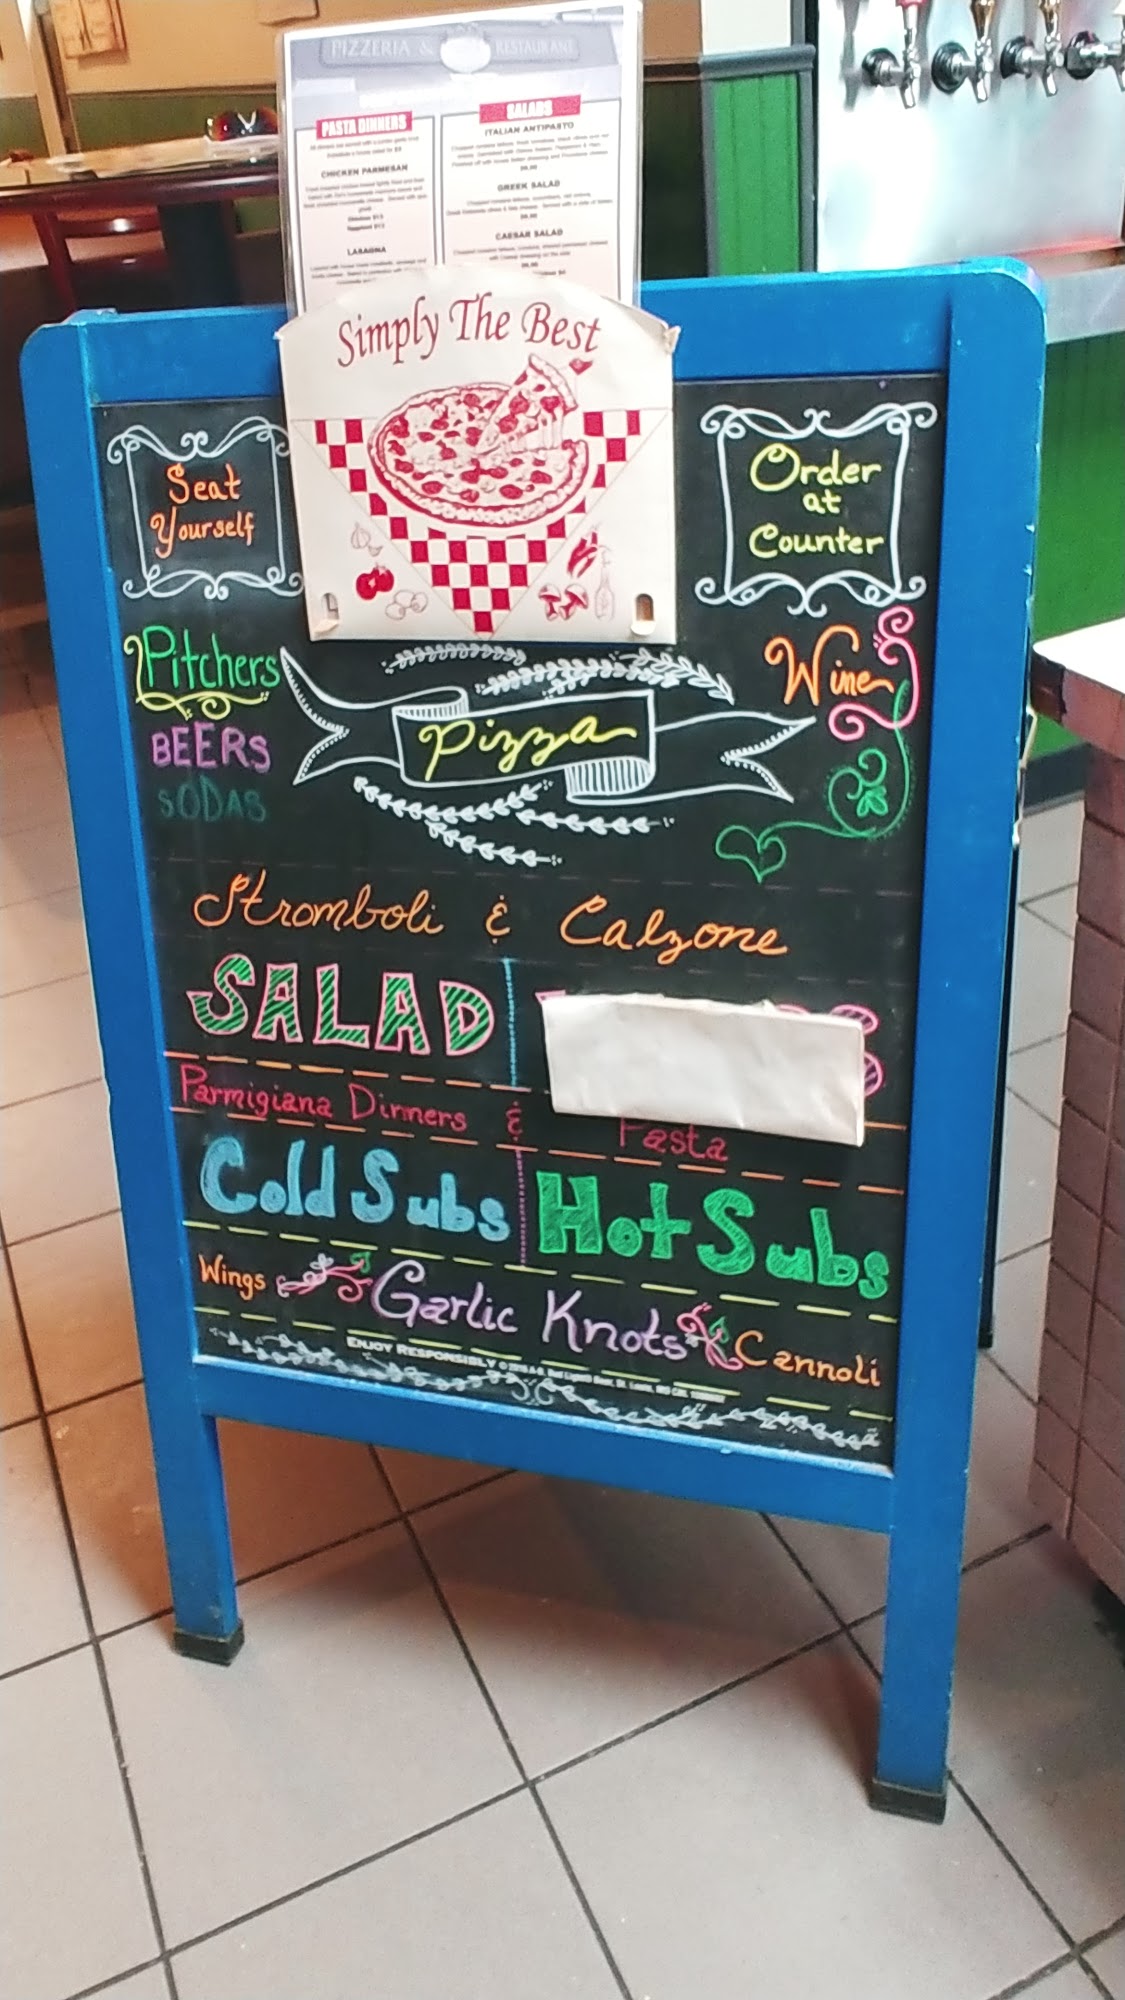 PIZZERIA & RESTAURANT
PASTA DINNERS
CHICKEN PARMESAN
Chicken $13
Eggplant $12
LASAGNA
SALADS
ITALIAN ANTIPASTO
GREEK SALAD
CAESAR SALAD
Simply The Best
Seat
Yourself
Order
at
Counter
Pitchers
BEERS
SODAS
Pizza
Wine
Stromboli & Calzone
SALAD
Parmigiana Dinners & Pasta
Cold Subs Hot Subs
Wings Garlic Knots Cannoli
ENJOY RESPONSIBLY